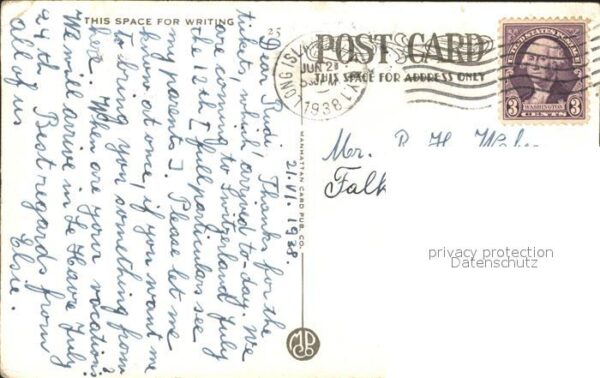 THIS SPACE FOR WRITING
25
POST CARD
THIS SPACE FOR ADDRESS ONLY
LONG ISLAND
JUN 21
1938
UNITED STATES POSTAGE
WASHINGTON
3 CENTS 3
MANHATTAN CARD PUB. CO.
21.VI.1938.
Dear Rudi, Thanks for the
ticket, which arrived to-day. We
are coming to Switzerland July
the 12th [full particulars see
my parents]. Please let me
know at once, if you want me
to bring you something from
here. When are your vacations?
We will arrive in Le Havre July
24th. Best regards from
all of us
Elsie.
Mr.
Falk
privacy protection
Datenschutz